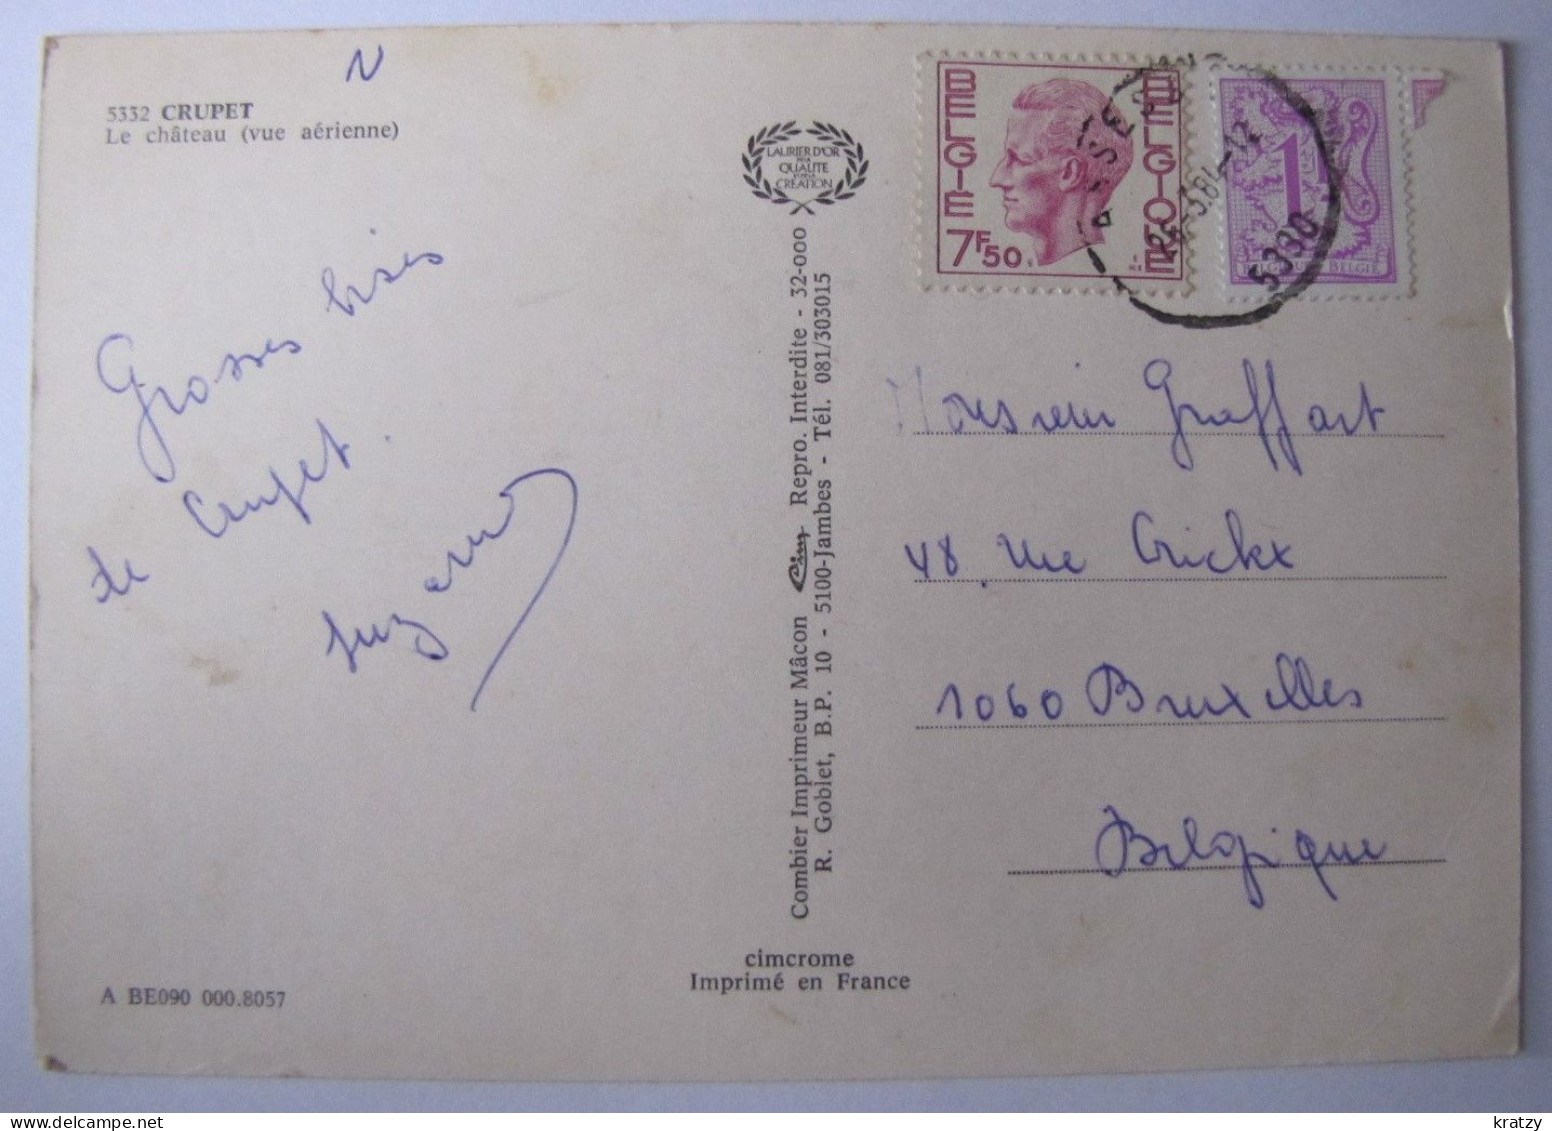 5332 CRUPET
Le château (vue aérienne)
Grosses bises
de Crupet.
Suzanne
A BE090 000.8057
LAURIER D'OR
POUR
QUALITE
CREATION
Combier Imprimeur Mâcon Cim Repro. Interdite - 32-000
R. Goblet, B.P. 10 - 5100-Jambes - Tél. 081/303015
cimcrome
Imprimé en France
BELGIE
BELGIQUE
7F50
1
BELGIË
ASSESSE
5330
Monsieur Graffart
48 rue Crickx
1060 Bruxelles
Belgique
delcampe.net
kratzy